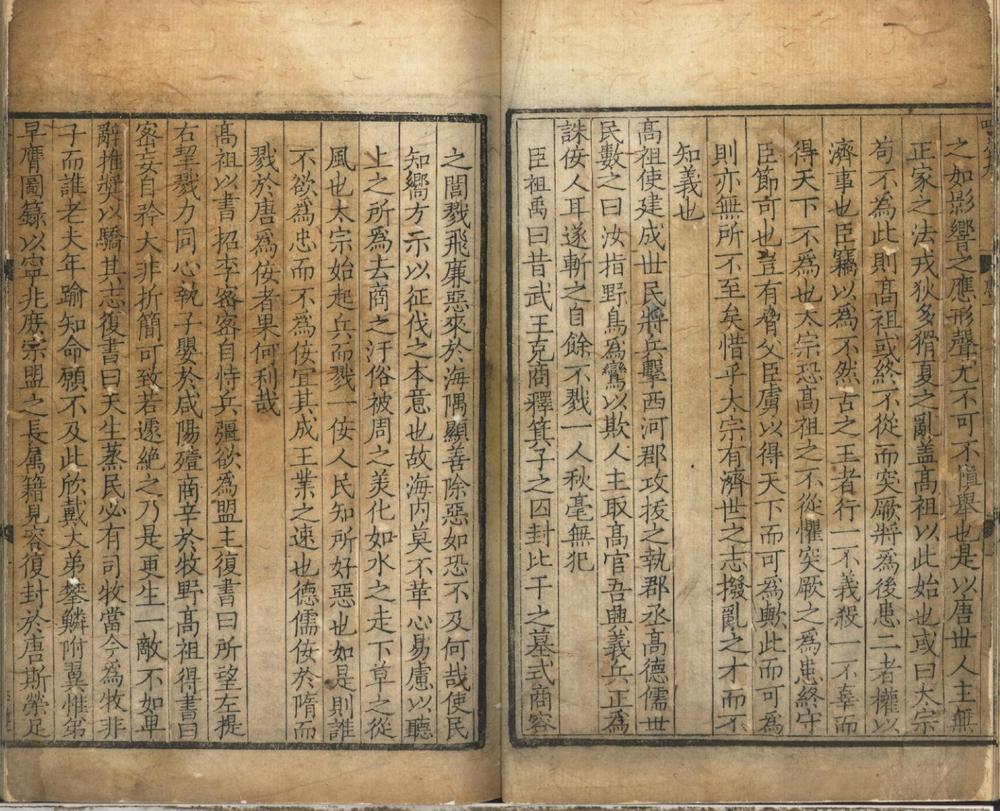 之如影響之應形聲尤不可不愼舉也是以唐世人主無
正家之法戎狄多猾夏之亂盖髙祖以此始也或曰太宗
苟不為此則髙祖或終不從而突厥將為後患二者權以
濟事也臣竊以為不然古之王者行一不義殺一不辜而
得天下不為也太宗恐髙祖之不從懼突厥之為患終守
臣節可也豈有脅父臣虜以得天下而可為歟此而可為
則亦無所不至矣惜乎太宗有濟世之志撥亂之才而不
知義也
髙祖使建成世民將兵擊西河郡攻拔之執郡丞髙德儒世
民數之曰汝指野鳥爲鸞以欺人主取髙官吾興義兵正爲
誅佞人耳遂斬之自餘不戮一人秋毫無犯
臣祖禹曰昔武王克商釋箕子之囚封比干之墓式商容
之閭戮飛廉惡來於海隅顯善除惡如恐不及何哉使民
知嚮方示以征伐之本意也故海内莫不革心易慮以聽
上之所爲去商之汙俗被周之美化如水之走下草之從
風也太宗始起兵而戮一佞人民知所好惡也如是則誰
不欲爲忠而不爲佞宜其成王業之速也德儒佞於隋而
戮於唐爲佞者果何利哉
髙祖以書招李密密自恃兵彊欲爲盟主復書曰所望左提
右挈戮力同心執子嬰於咸陽殪商辛於牧野髙祖得書曰
密妄自矜大非折簡可致若遽絶之乃是更生一敵不如卑
辭推奬以驕其志復書曰天生蒸民必有司牧當今爲牧非
子而誰老夫年踰知命願不及此欣戴大弟攀鱗附翼惟弟
早膺圖籙以寧兆庻宗盟之長屬籍見容復封於唐斯榮足